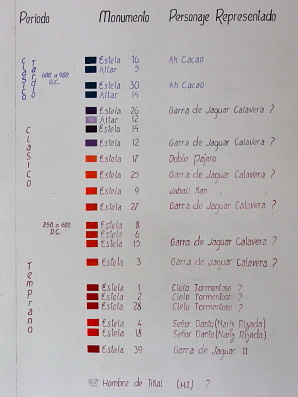 Período Monumento Personaje Representado
Clásico Tardío
600 a 900 D.C.
Estela 16 Ah Cacao
Altar 5
Estela 30 Ah Cacao
Altar 14
Estela 26 Garra de Jaguar Calavera ?
Altar 12
Estela 14
Clásico
Estela 12 Garra de Jaguar Calavera ?
Estela 17 Doble Pájaro
Estela 25 Garra de Jaguar Calavera ?
Estela 9 Jabalí Kan
Estela 27 Garra de Jaguar Calavera ?
250 a 600 D.C.
Estela 8
Estela 6
Estela 15 Garra de Jaguar Calavera ?
Temprano
Estela 3 Garra de Jaguar Calavera ?
Estela 1 Cielo Tormentoso ?
Estela 2 Cielo Tormentoso ?
Estela 28 Cielo Tormentoso ?
Estela 4 Señor Danto (Nariz Rizada)
Estela 18 Señor Danto (Nariz Rizada)
Estela 39 Garra de Jaguar II
Hombre de Tikal (H.T.) ?